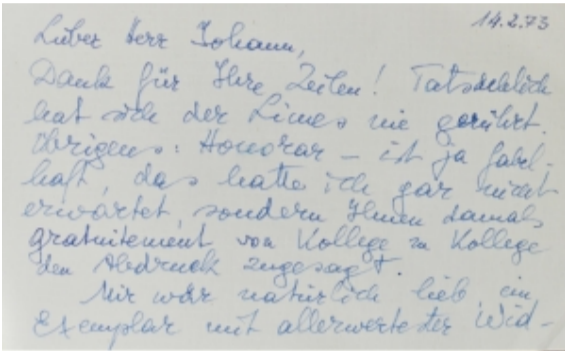 14.2.73
Lieber Herr Johann,
Dank für Ihre Zeilen! Tatsächlich
hat sich der Limes nie gerührt.
Übrigens: Honorar – ist ja fabel-
haft, das hatte ich gar nicht
erwartet, sondern Ihnen damals
gratuitement von Kollege zu Kollege
den Abdruck zugesagt.
Mir wär natürlich lieb, ein
Exemplar mit allerwertester Wid-